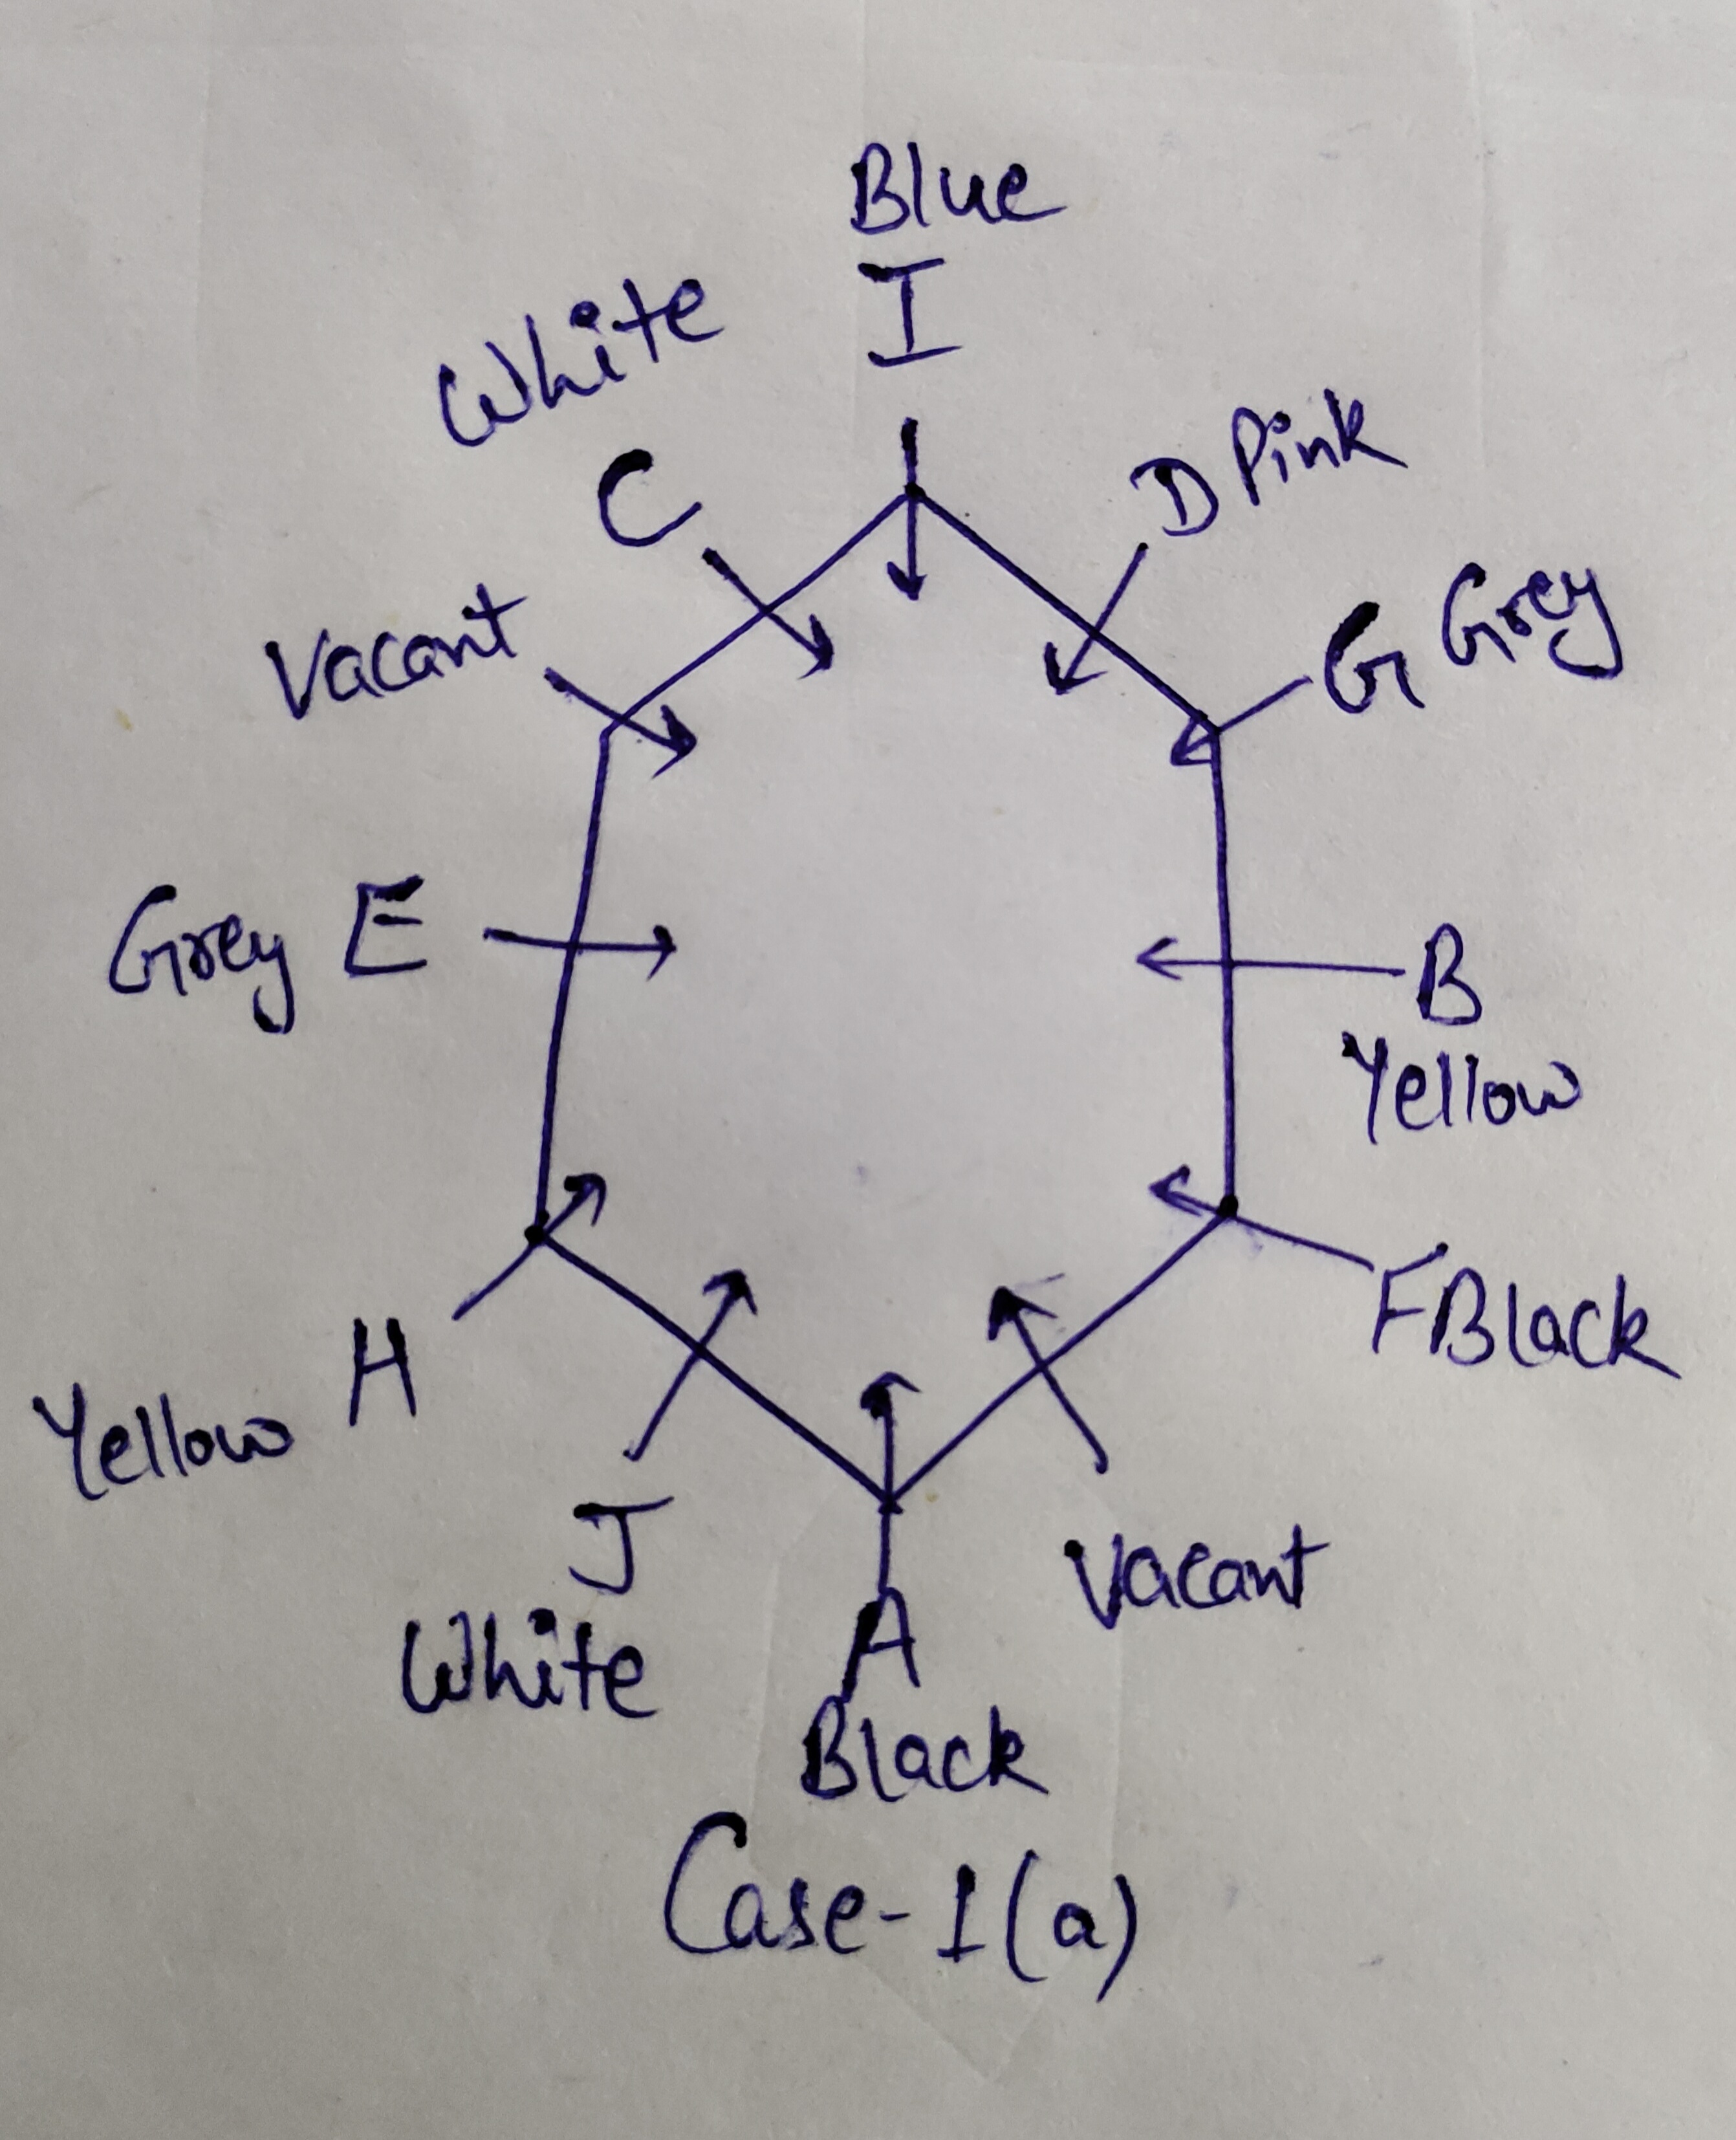 Blue
I
White
C
D Pink
Vacant
G Grey
Grey E
B
Yellow
H
Yellow
F Black
J
White
A
Black
Vacant
Case-1(a)